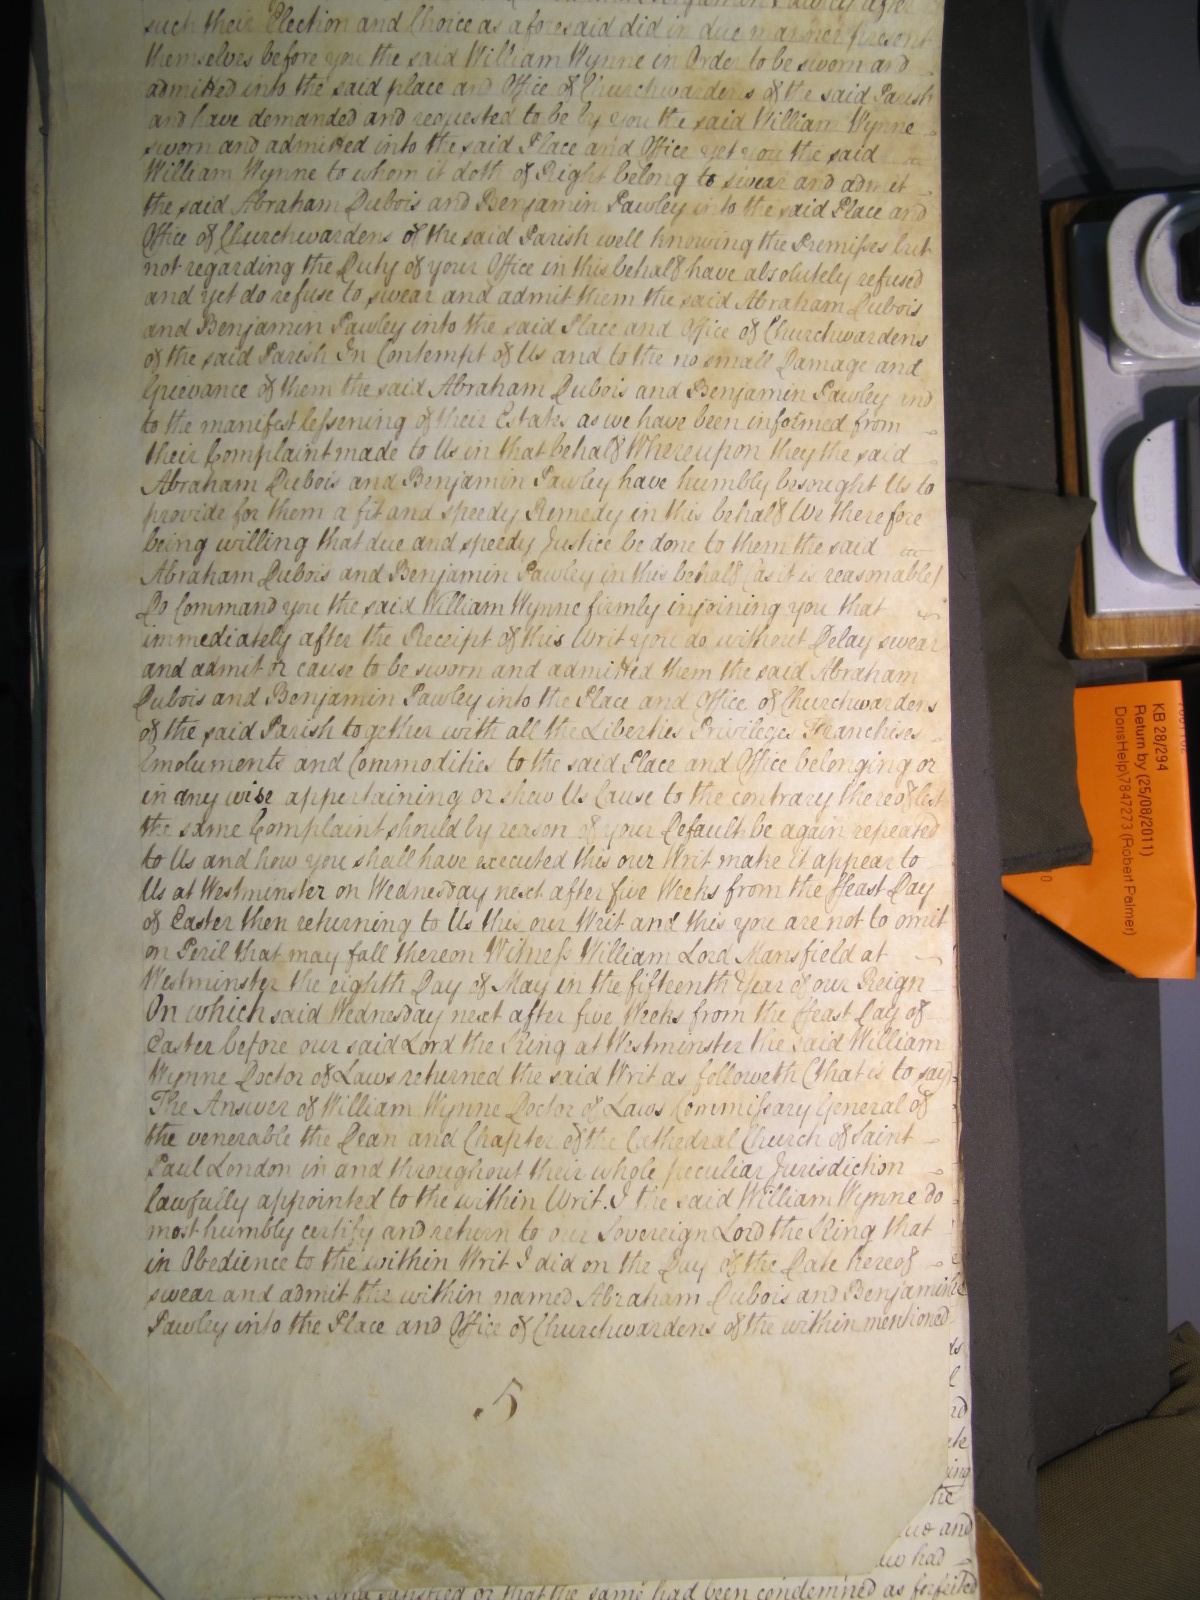 such their Election and Choice as aforesaid did in due manner present
themselves before you the said William Wynne in Order to be sworn and
admitted into the said place and Office of Churchwardens of the said Parish
and have demanded and requested to be by you the said William Wynne
sworn and admitted into the said Place and Office yet you the said
William Wynne to whom it doth of Right belong to swear and admit
the said Abraham Dubois and Benjamin Pawley into the said Place and
Office of Churchwardens of the said Parish well knowing the Premisses but
not regarding the Duty of your Office in this behalf have absolutely refused
and yet do refuse to swear and admit them the said Abraham Dubois
and Benjamin Pawley into the said Place and Office of Churchwardens
of the said Parish In Contempt of Us and to the no small Damage and
Grievance of them the said Abraham Dubois and Benjamin Pawley and
to the manifest lessening of their Estates as we have been informed from
their Complaint made to Us in that behalf Whereupon they the said
Abraham Dubois and Benjamin Pawley have humbly besought Us to
provide for them a fit and speedy Remedy in this behalf We therefore
being willing that due and speedy Justice be done to them the said
Abraham Dubois and Benjamin Pawley in this behalf (as it is reasonable)
Do Command you the said William Wynne firmly injoining you that
immediately after the Receipt of this Writ you do without Delay swear
and admit or cause to be sworn and admitted them the said Abraham
Dubois and Benjamin Pawley into the Place and Office of Churchwardens
of the said Parish together with all the Liberties Privileges Franchises
Emoluments and Commodities to the said Place and Office belonging or
in any wise appertaining or shew Us Cause to the contrary thereof lest
the same Complaint should by reason of your Default be again repeated
to Us and how you shall have executed this our Writ make it appear to
Us at Westminster on Wednesday next after five Weeks from the ffeast Day
of Easter then returning to Us this our Writ and this you are not to omit
on Peril that may fall thereon Witness William Lord Mansfield at
Westminster the eighth Day of May in the fifteenth Year of our Reign
On which said Wednesday next after five Weeks from the ffeast Day of
Easter before our said Lord the King at Westminster the said William
Wynne Doctor of Laws returned the said Writ as followeth (that is to say)
The Answer of William Wynne Doctor of Laws Commissary General of
the venerable the Dean and Chapter of the Cathedral Church of Saint
Paul London in and throughout their whole peculiar Jurisdiction
lawfully appointed to the within Writ. I the said William Wynne do
most humbly certify and return to our Sovereign Lord the King that
in Obedience to the within Writ I did on the Day of the Date hereof
swear and admit the within named Abraham Dubois and Benjamin
Pawley into the Place and Office of Churchwardens of the within mentioned
5
and satisfied or that the same had been condemned as forfeited
KB 28/294
Return by (25/08/2011)
DorisHelp\7847273 (Robert Palmer)